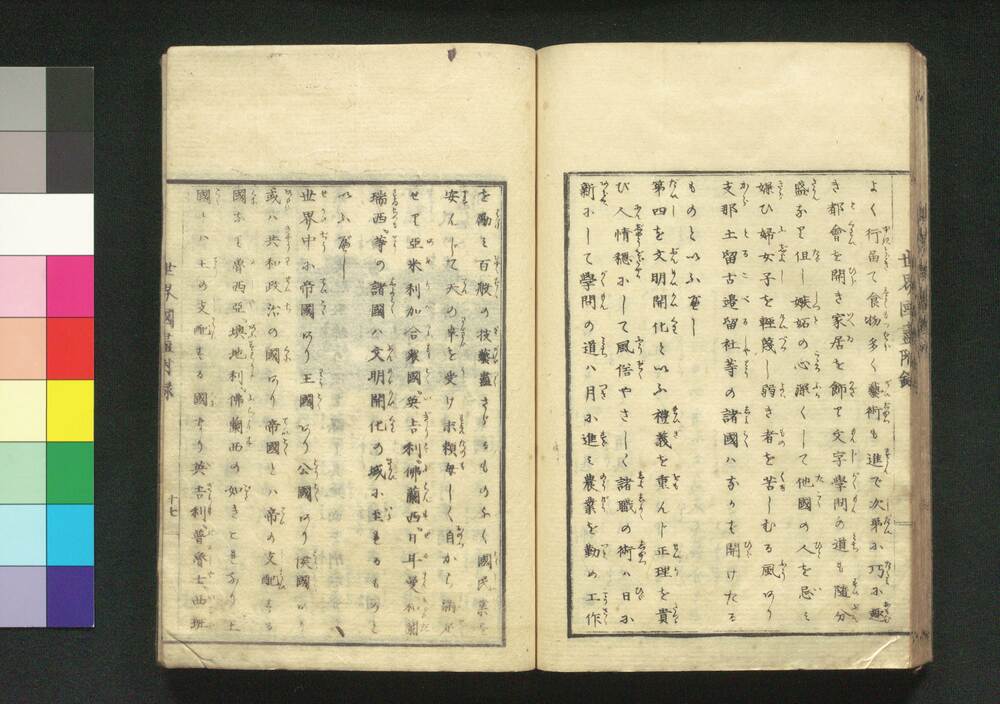 世界國盡附録
よく行届て食物多く藝術も進で次第に巧に趣
き都會を開き家居を飾て文字學問の道も隨分
盛なれど但し嫉妬の心深くして他國の人を忌み
嫌ひ婦女子を輕蔑し弱き者を苦しむる風あり
支那土留古邊留社等の諸國ハなかを開けたる
ものといふべし
第四を文明開化といふ禮義を重んじ正理を貴
び人情穩にして風俗やさしく諸職の術ハ日に
新にして學問の道ハ月に進み農業を勤め工作
を勵み百般の技藝盡さゞるものなく國民業を
安んじて天の幸を受け末頼母しく自から滿足
せて亞米利加合衆國英吉利佛蘭西日耳曼和蘭
瑞西等の諸國ハ文明開化の域に至れるものと
いふべし
世界中に帝國あり王國あり公國あり侯國あり
或ハ共和政治の國あり帝國とハ帝の支配する
國なり魯西亞墺地利佛蘭西の如きこれなり王
國とハ王の支配する國なり英吉利普魯士西班
世界國盡附録
十七